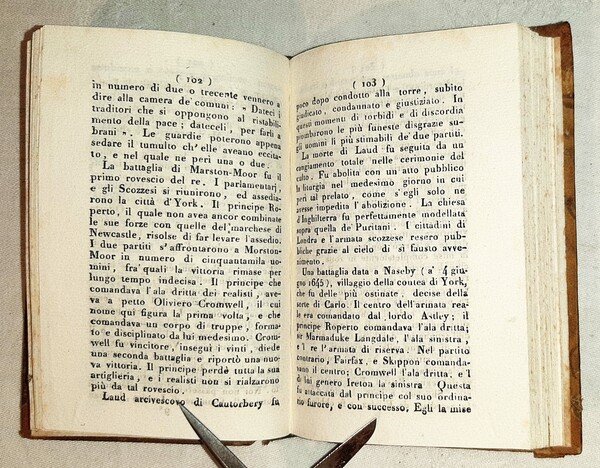 ( 102 )
in numero di due o trecente vennero a
dire alla camera de' comuni: „ Dateci i
traditori che si oppongono al ristabili-
mento della pace; dateceli, per farli a
brani „. Le guardie poterono appena
sedare il tumulto ch'elle aveano eccita-
to, e nel quale ne perì una o due.
La battaglia di Marston-Moor fu il
primo rovescio del re. I parlamentarj,
e gli Scozzesi si riunirono, ed assedia-
rono la città d'York. Il principe Ro-
perto, il quale non avea ancor combinate
le sue forze con quelle del marchese di
Newcastle, risolse di far levare l'assedio.
I due partiti s'affrontarono a Morston-
Moor in numero di cinquantamila uo-
mini, fra' quali la vittoria rimase per
lungo tempo indecisa. Il principe che
comandava l'ala dritta dei realisti, ave-
va a petto Oliviero Cromwell, il cui
nome qui figura la prima volta, e che
comandava un corpo di truppe, forma-
to e disciplinato da lui medesimo. Crom-
well fu vincitore, inseguì i vinti, diede
una seconda battaglia e riportò una nuo-
va vittoria. Il principe perdè tutta la sua
artiglieria, e i realisti non si rialzarono
più da tal rovescio.
Laud arcivescovo di Cantorbery fu
( 103 )
poco dopo condotto alla torre, subito
giudicato, condannato e giustiziato. In
questi momenti di torbidi e di discordia
piombarono le più funeste disgrazie su-
gli uomini li più stimabili de' due partiti.
La morte di Laud fu seguita da un
cangiamento totale nelle cerimonie del
culto. Fu abolita con un atto pubblico
la liturgia nel medesimo giorno in cui
perì tal prelato, come s'egli solo ne
avesse impedita l'abolizione. La chiesa
d'Inghilterra fu perfettamente modellata
sopra quella de' Puritani. I cittadini di
Londra e l'armata scozzese resero pub-
bliche grazie al cielo di sì fausto avve-
nimento.
Una battaglia data a Naseby ( a' 4 giu-
gno 1645), villaggio della contea di York,
che fu delle più ostinate, decise della
sorte di Carlo. Il centro dell'armata rea-
le era comandato dal lordo Astley; il
principe Roperto comandava l'ala dritta;
sir Marmaduke Langdale, l'ala sinistra,
e l re l'armata di riserva. Nel partito
contrario, Fairfax, e Skippon comanda-
vano il centro; Cromwell l'ala dritta, e 'l
di lui genero Ireton la sinistra Questa
fu attaccata dal principe col suo ordina-
rio furore, e con successo. Egli la mise